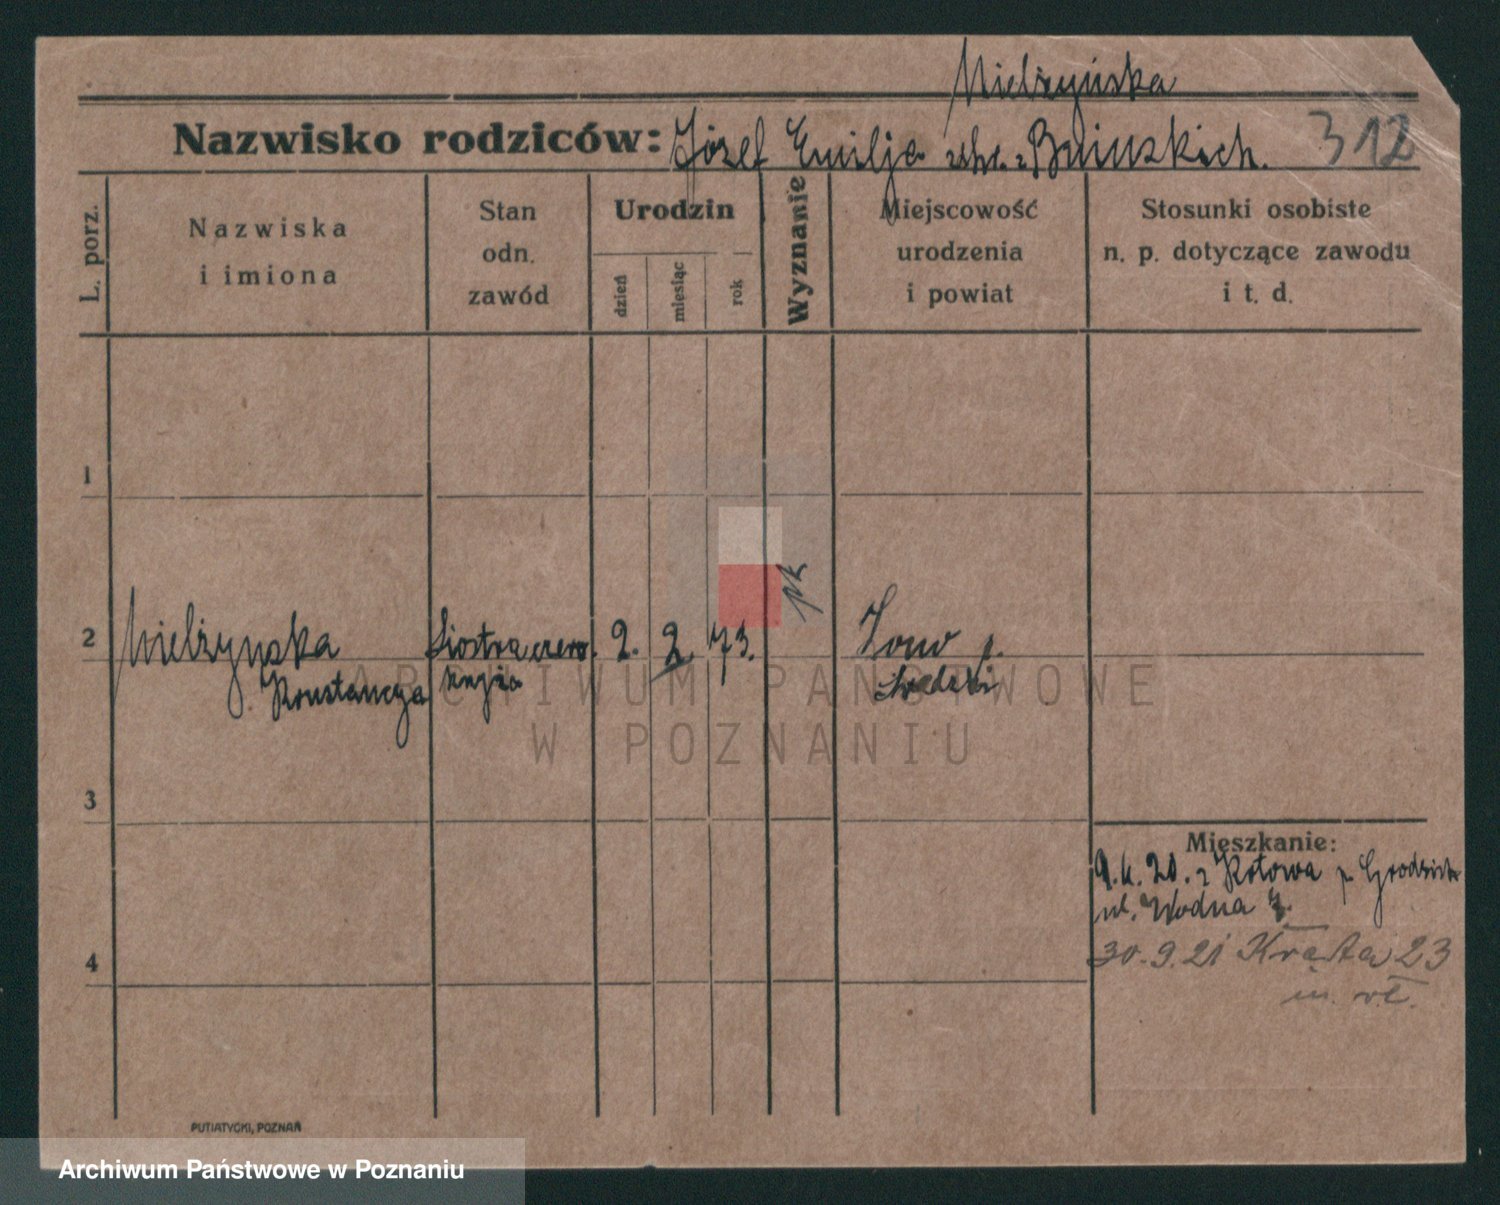 Mielżyńska
Nazwisko rodziców: Józef Emilja z Bnińskich.
312
L. porz.
Nazwiska
i imiona
Stan
odn.
zawód
Urodzin
dzień
miesiąc
rok
Wyznanie
Miejscowość
urodzenia
i powiat
Stosunki osobiste
n. p. dotyczące zawodu
i t. d.
1
2
Mielżynska
Konstancja
Siostra czerw.
krzyża
2.
2
73.
rk
p.
3
4
Mieszkanie:
9.4.20. z Kotowa p. Grodzisk
ul. Wodna
30.9.21 Kręta 23
m. wł.
PUTIATYCKI, POZNAŃ
ARCHIWUM PAŃSTWOWE
W POZNANIU
Archiwum Państwowe w Poznaniu